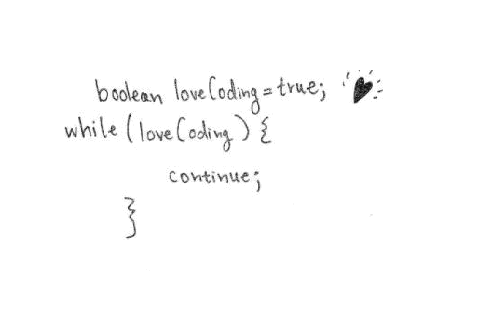 boolean loveCoding = true;
while (loveCoding) {
continue;
}